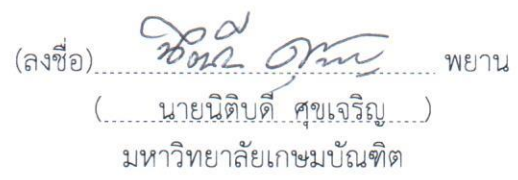 (ลงชื่อ)........................พยาน
(........นายนิติบดี ศุขเจริญ........)
มหาวิทยาลัยเกษมบัณฑิต